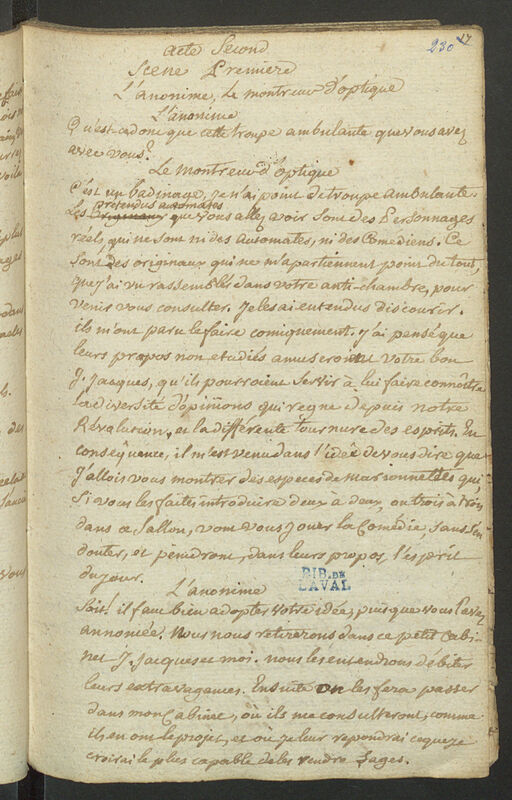 acte Second
230 17
Scene Premiere
L'anonime, Le montreur d'optique
L'anonime
Qu'est-ce donc que cette troupe ambulante que vous avez
avec vous?
Le montreur d'optique
C'est un badinage, je n'ai point de troupe ambulante.
pretendus automates
Les originaux que vous allez avoir sont des Personnages
réels, qui ne sont ni des automates, ni des Comediens. Ce
sont des originaux qui ne m'apartiennent point du tout,
que j'ai vu rassemblés dans votre anti-chambre, pour
venir vous consulter. Je les ai entendus discourir.
ils m'ont paru le faire comiquement. j'ai pensé que
leurs propos non etudiés amuseront votre bon
J. Jacques, qu'ils pourroient servir à lui faire connoitre
la diversité d'opinions qui regne depuis notre
Révolution, et la différente tournure des esprits. En
conséquence, il m'est venu dans l'idée de vous dire que
j'allois vous montrer des especes de marionnettes qui,
si vous les faites introduire deux à deux, ou trois à trois
dans ce Sallon, vont vous jouer la Comédie, sans s'en
douter, et peindront, dans leurs propos, l'esprit
du jour.
BIB. DE
LAVAL
L'anonime
Soit! il faut bien adopter votre idée, puisque vous l'avez
annoncée. Nous nous retirerons dans ce petit Cabi-
net J. Jacques et moi. nous les entendrons débiter
leurs extravagances. Ensuite on les fera passer
dans mon Cabinet, où ils me consulteront, comme
ils en ont le projet, et où je leur repondrai ce que je
croirai le plus capable de les rendre Sages.